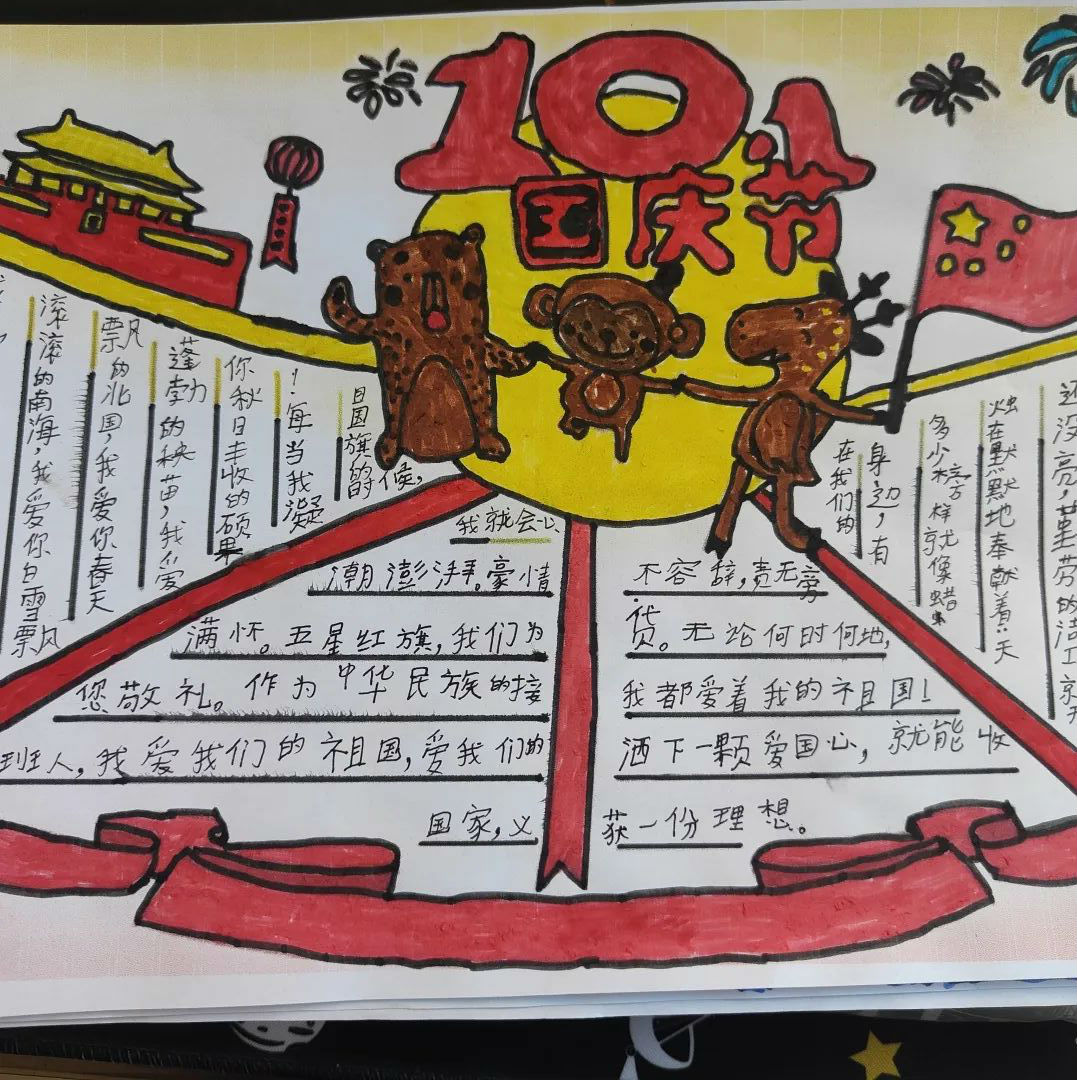 10.1
国庆节
滚滚的南海,我爱你白雪飘
飘的北国,我爱你春天
蓬勃的秧苗,我爱
你秋日丰收的硕果
!每当我凝
日国旗的时候,
我就会心
潮澎湃。豪情
满怀。五星红旗,我们为
您敬礼。作为中华民族的接
班人,我爱我们的祖国,爱我们的
国家,义
不容辞,责无旁
贷。无论何时何地,
我都爱着我的祖国!
洒下一颗爱国心,就能收
获一份理想。
在我们的
身边,有
多少榜样就像蜡
烛在默默地奉献着:天
还没亮,勤劳的清